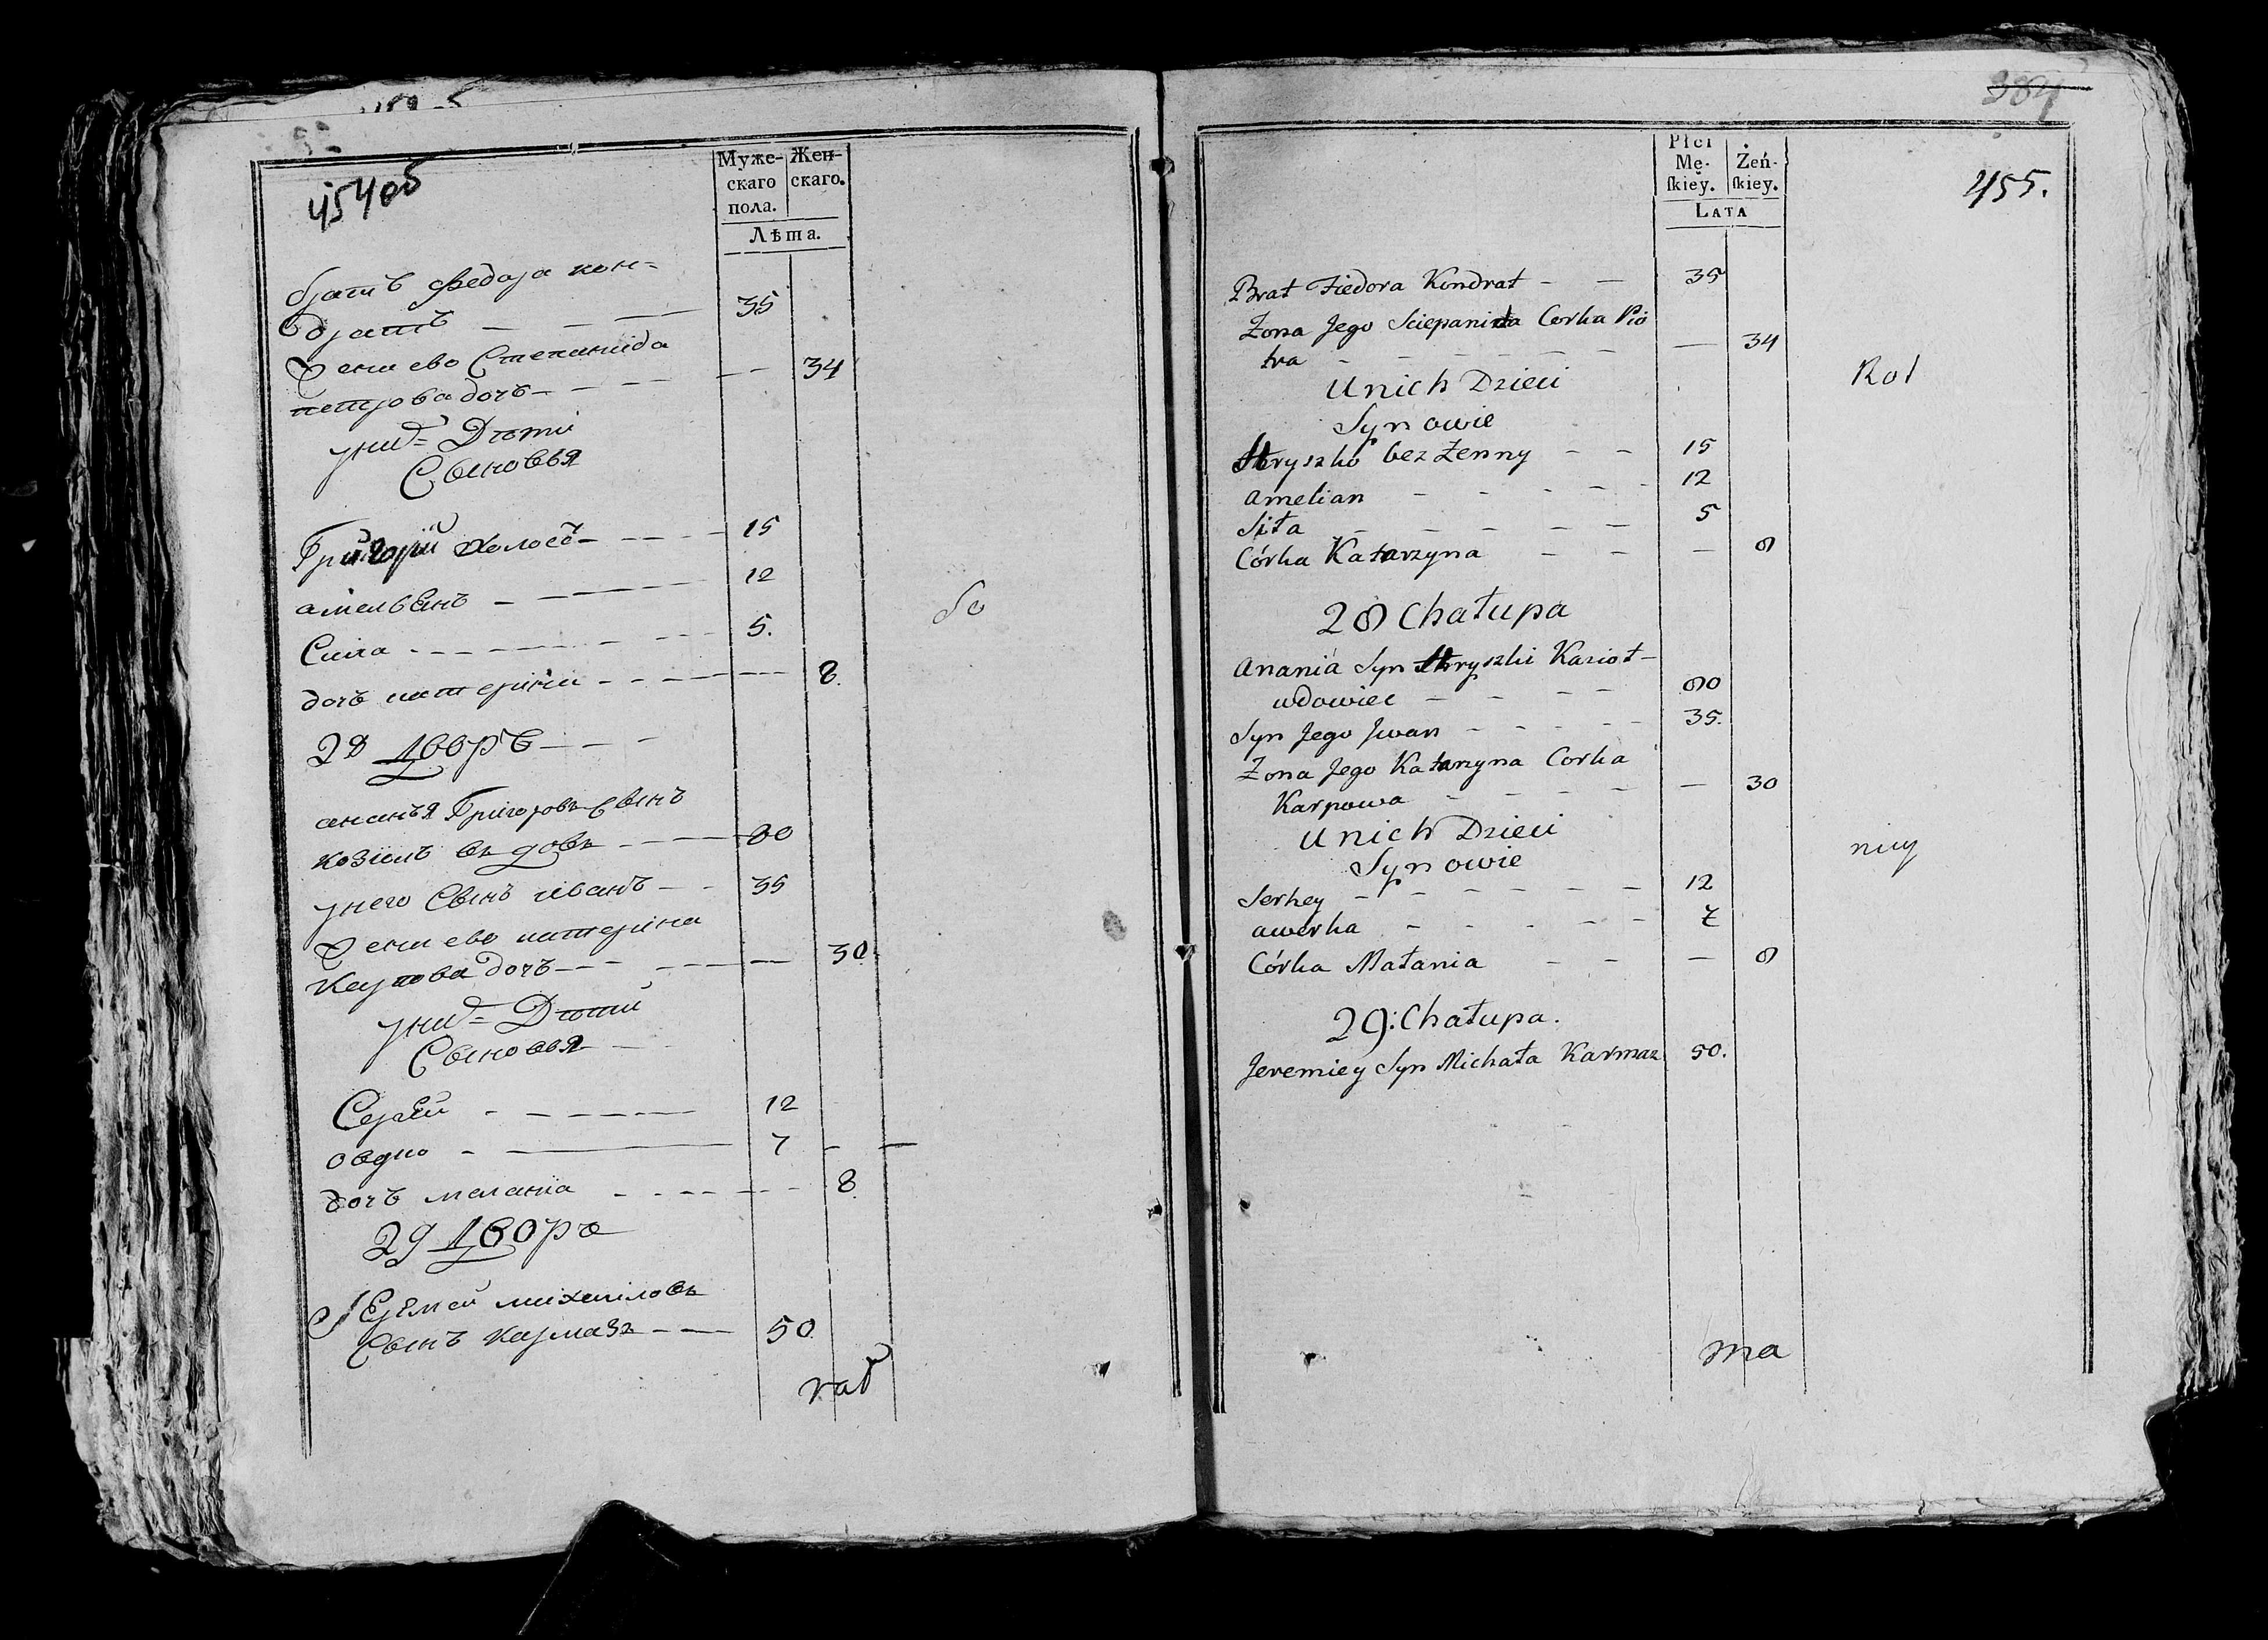 454об
Муже- Жен-
скаго скаго.
пола.
Лѣта.
братъ Федора кон=
дратъ — — — 35
жена ево Степанида
петрова дочь — — — 34
у них= Дѣти
Сыновья
Григорїй холостъ — — — 15
амельянъ — — — 12
Сила — — — 5.
дочь катерина — — — 8.
28 Дворъ — — —
ананья Григоровъ сынъ
козіолъ вдовъ — — — 80
у него Сынъ иванъ — — 35
жена ево катерина
карпова дочь — — — 30.
у них= Дѣти
Сыновья —
Сергѣй — — — 12
7
дочь маланіа — — — 8.
29 Дворъ
Еремей михайловъ
Сынъ кармазъ — — 50.
384
455.
Płci
Mę- Żeń-
ſkiey. ſkiey.
Lata
Brat Fiedora Kondrat — — 35
Zona Jego Sciepanida Corka Pio
tra — — — 34
U nich Dzieci
Synowie
Hryszko bez Zenny — — 15
Amelian — — — 12
Siła — — — 5
Córka Katarzyna — — — 8
28 Chałupa
Anania Syn Hryszki Kazioł —
wdowiec — — — 80
Syn Jego Jwan — — — 35.
Zona Jego Katarzyna Corka
Karpowa — — — 30
U nich Dzieci
Synowie
Serhey — — — 12
Awerka — — — 7
Córka Małania — — — 8
29: Chałupa.
Jeremiey Syn Michała Karmaz 50.